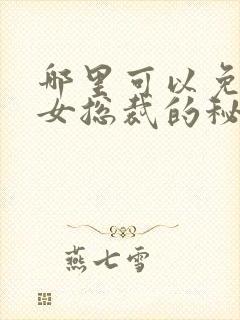 哪里可以免
女总裁的秘
燕七雪